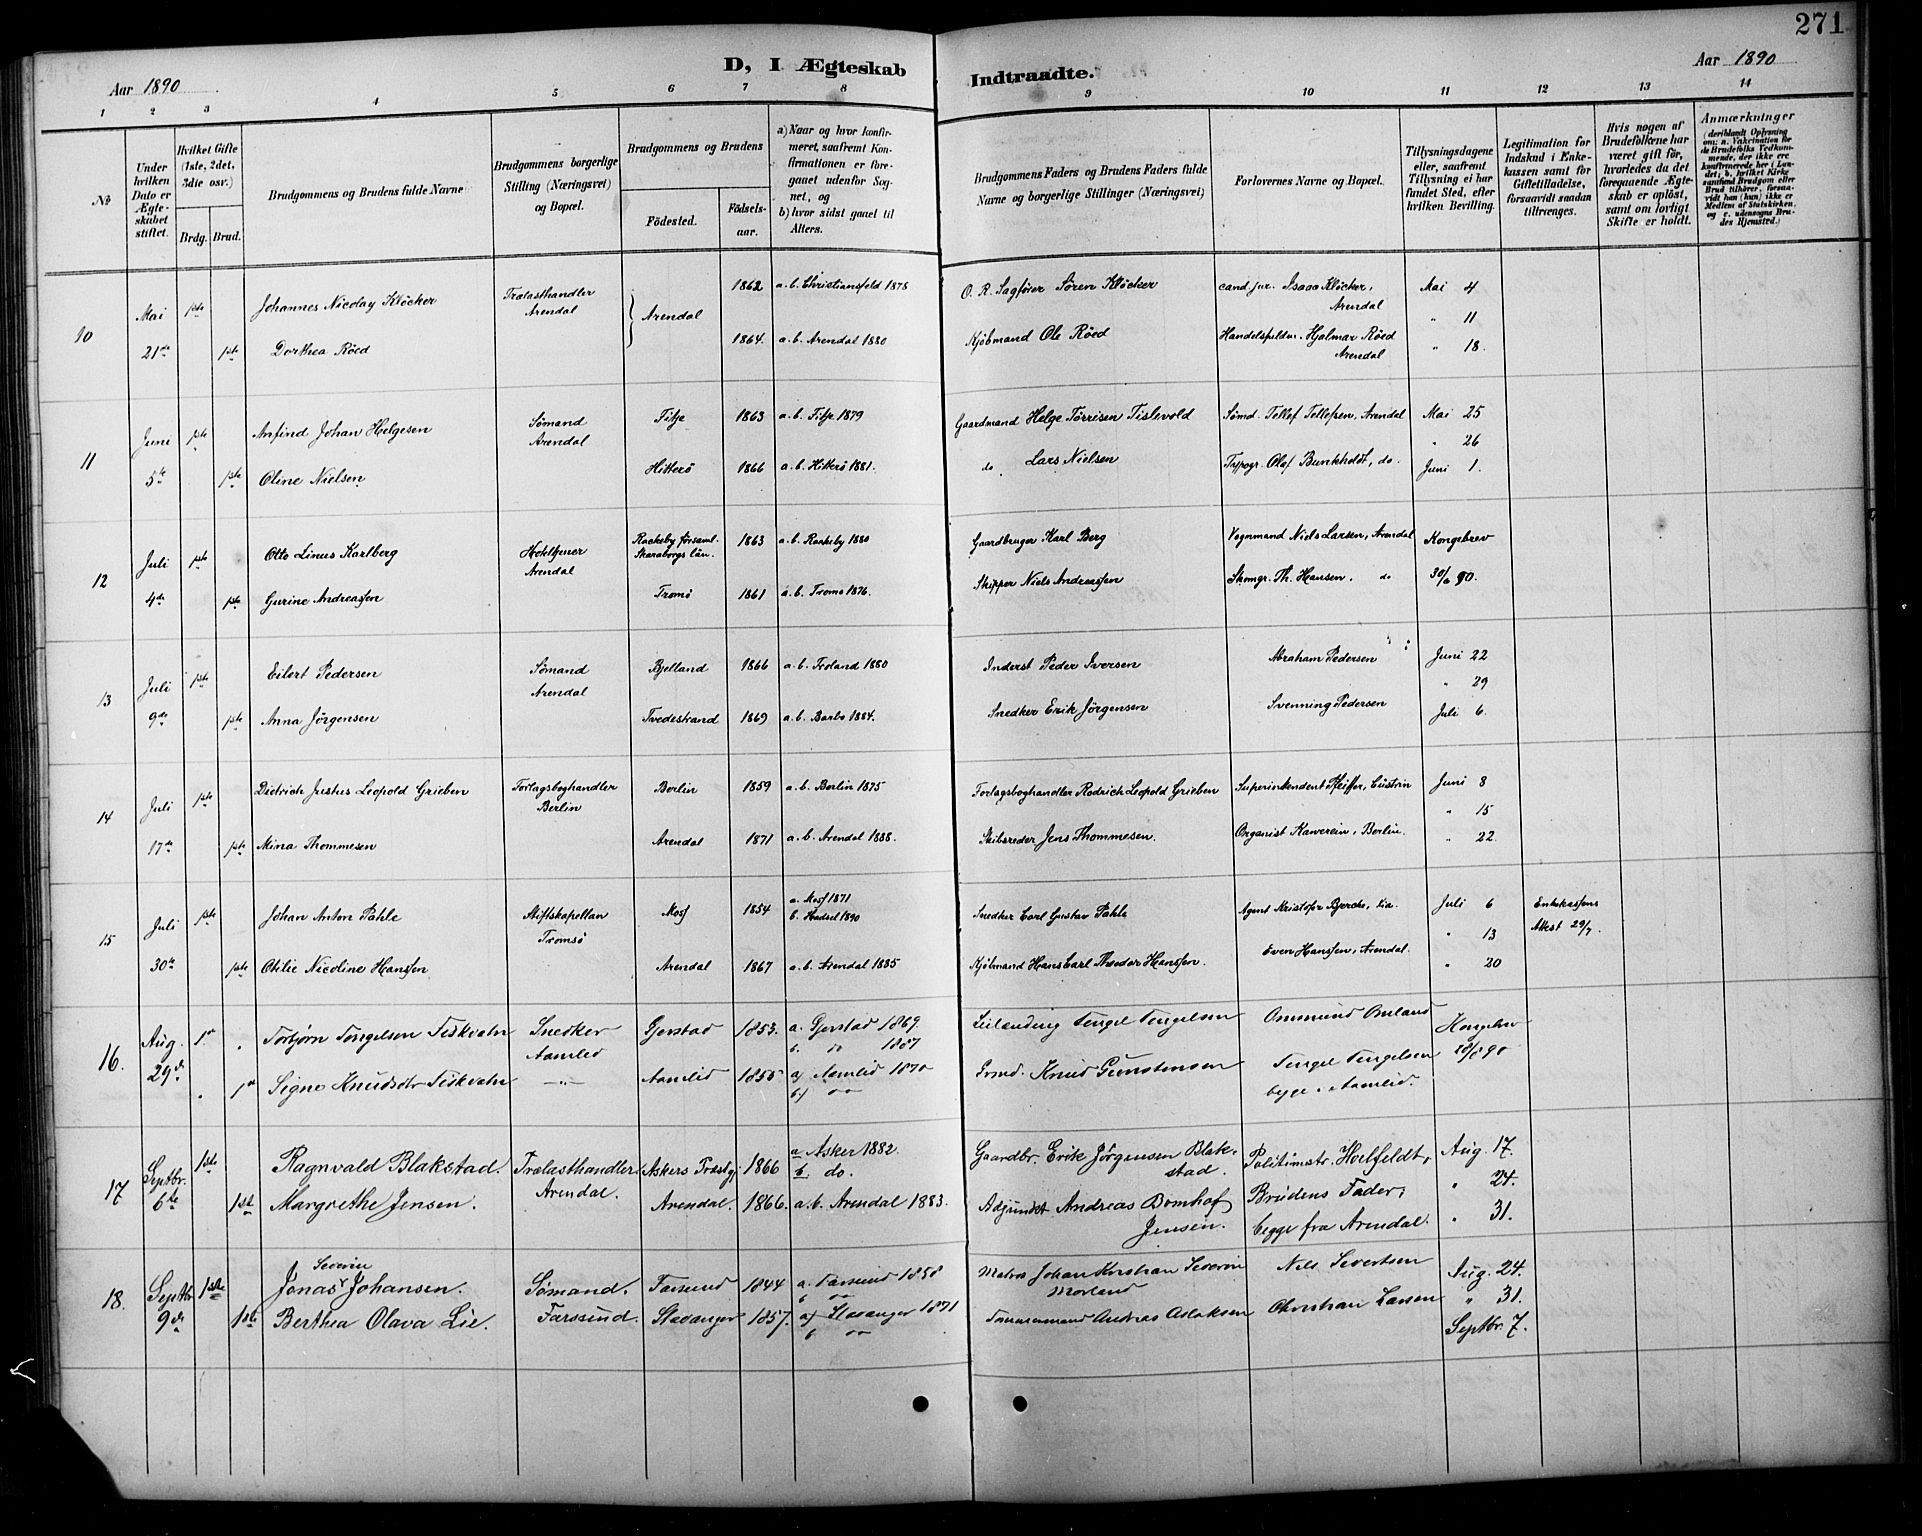 271
Aar 1890
D, I Ægteskab
Indtraadte.
Aar 1890
1 2 3 4 5 6 7 8 9 10 11 12 13 14
No
Under hvilken Dato er Ægteskabet stiftet.
Hvilket Gifte (1ste, 2det, 3die osv.)
Brdg. Brud.
Brudgommens og Brudens fulde Navne
Brudgommens borgerlige Stilling (Næringsvei) og Bopæl.
Brudgommens og Brudens
Födested.
Födsels-aar.
a) Naar og hvor konfirmeret, saafremt Konfirmationen er foregaaet udenfor Sognet, og
b) hvor sidst gaaet til Alters.
Brudgommens Faders og Brudens Faders fulde Navne og borgerlige Stillinger (Næringsvei)
Forlovernes Navne og Bopæl.
Tillysningsdagene eller, saafremt Tillysning ei har fundet Sted, efter hvilken Bevilling.
Legitimation for Indskud i Enkekassen samt for Giftetilladelse, forsaavidt saadan tiltrænges.
Hvis nogen af Brudefolkene har været gift för, hvorledes da det foregaaende Ægteskab er oplöst, samt om lovligt Skifte er holdt.
Anmærkninger
10 Mai 1ste Johannes Nicolay Klöcker Trælasthandler Arendal Arendal 1862 a. b. Christiansfeld 1878 O. R. Sagförer Sören Klöcker cand. jur. Isaac Klöcker, Arendal Mai 4
" 11
21de 1ste Dorthea Röed 1864. a. b. Arendal 1880 Kjöbmand Ole Röed Hjalmar Röed Arendal " 18.
11 Juni 1ste Anfind Johan Helgesen Sömand Arendal Fitje 1863 a. b. Fitje 1879 Gaardmand Helge Törrisen Tislevold Sömd. Tellef Tellefsen, Arendal Mai 25
" 26
5te 1ste Oline Nielsen Hitterö 1866 a. b. Hitterö 1881. do Lars Nielsen Typogr. Olaf Bunkholdt, do. Juni 1.
12 Juli 1ste Otto Linus Karlberg Arendal Rackeby församl. Skaraborgs län. 1863 a. b. Rackeby 1880 Gaardbruger Karl Berg Vognmand Niels Larsen, Arendal Kongebrev
4de 1ste Gurine Andreassen Tromö 1861 a. b. Tromö 1876. Skipper Niels Andreassen Skomgr. Th. Hansen. do 30/6 90.
13 Juli 1ste Eilert Pedersen Sömand Arendal Bjelland 1866 a. b. Froland 1880 Inderst Peder Iversen Abraham Pedersen Juni 22
" 29
9de 1ste Anna Jörgensen Tvedestrand 1869 a. b. Barbo 1884. Snedker Erik Jörgensen Svenning Pedersen Juli 6.
14 Juli 1ste Dietrich Justus Leopold Grieben Forlagsboghandler Berlin Berlin 1859 a. b. Berlin 1875 Forlagsboghandler Rodrich Leopold Grieben Superintendent Pfeiffer, Cüstrin Juni 8
" 15
17de 1ste Mina Thommesen Arendal 1871 a. b. Arendal 1888. Skibsreder Jens Thommesen. Organist Kawerein, Berlin. " 22.
15 Juli 1ste Johan Anton Pahle Stiftskapellan Tromsö Moss 1854 a. Moss 1871
b. Hadsel 1890 Snedker Carl Gustav Pahle Agent Kristofer Bjerche, Juli 6 Enkekassens Attest 29/7.
" 13
30te 1ste Otilie Nicoline Hanssen Arendal 1867 a. b. Arendal 1885 Kjöbmand Hans Carl Theodor Hanssen. Even Hanssen, Arendal. " 20
16. Aug. 1st Torbjörn Tengelsen Fiskvatn Snedker Aamlid Gjerstad 1853. a. Gjerstad 1869.
b. do 1887 Leilending Tengel Tengelsen Ommund Omland Kongebrev
29de 1st Signe Knudsdtr Fiskvatn —"— Aamlid 1855 a) Aamlid 1870
b) do Grmd. Knud Gunstensen Tengel Tengelsen begge i Aamlid.
17 Septbr. 1ste Ragnvald Blakstad. Trælasthandler Arendal. Askers Præstgj 1866 a Asker 1882.
b. do. Gaardbr. Erik Jörgensen Blakstad. Politimstr. Holfeldt, Aug. 17.
" 24.
6te 1ste Margrethe Jensen. Arendal. 1866. a. b. Arendal 1883. Adjunct Andreas Bomhof Jensen. Brudens Fader, begge fra Arendal. " 31.
18. Septbr 1ste Jonas Severin Johansen. Sömand. Farssund. Farsund 1844 a. Farsund 1858
b do Matros Johan Kristian Severin Morland Nils Severtsen Aug. 24.
" 31.
9de 1ste Berthea Olava Lie. Stavanger 1857. a) Stavanger 1871
b do Tömmermand Andreas Aslaksen Christian Larsen Septbr. 7.